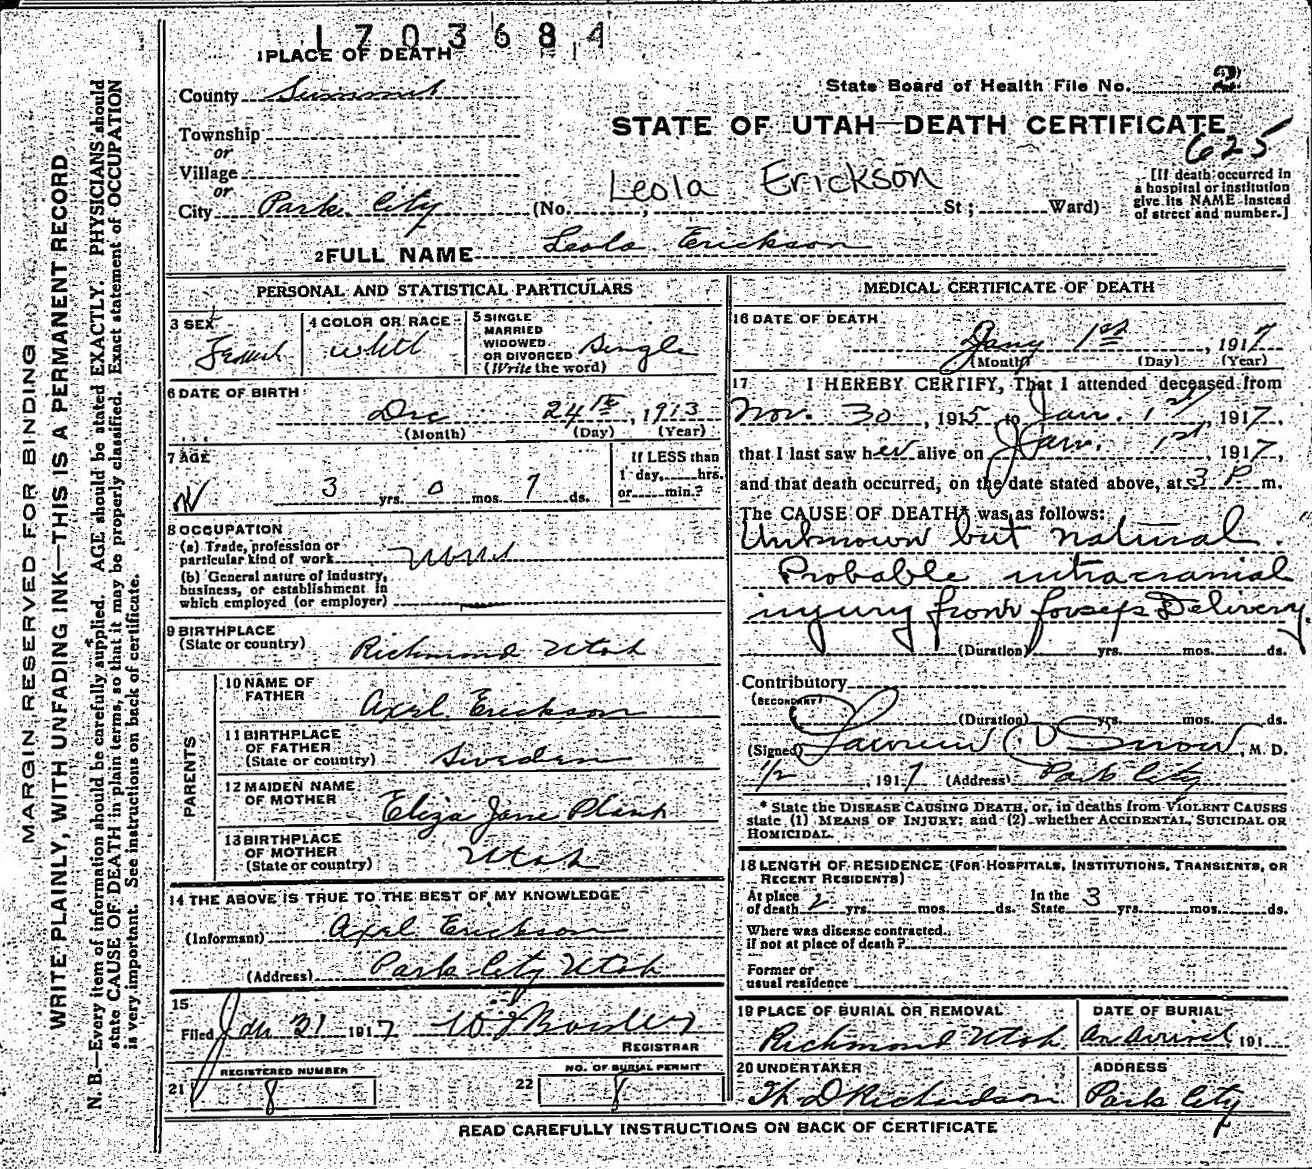 1 7 0 3 6 8 4
1 PLACE OF DEATH
County Summit
State Board of Health File No. 2
Township
or
STATE OF UTAH—DEATH CERTIFICATE
625
Village
or
City Park City (No. ; St ; Ward)
Leola Erickson
[If death occurred in
a hospital or institution
give its NAME instead
of street and number.]
2 FULL NAME Leola Erickson
MARGIN RESERVED FOR BINDING
WRITE PLAINLY, WITH UNFADING INK—THIS IS A PERMANENT RECORD
N. B.—Every item of information should be carefully supplied. AGE should be stated EXACTLY. PHYSICIANS should
state CAUSE OF DEATH in plain terms, so that it may be properly classified. Exact statement of OCCUPATION
is very important. See instructions on back of certificate.
PERSONAL AND STATISTICAL PARTICULARS
3 SEX
Female
4 COLOR OR RACE
white
5 SINGLE
MARRIED
WIDOWED
OR DIVORCED Single
(Write the word)
6 DATE OF BIRTH
Dec 24th, 1913
(Month) (Day) (Year)
7 AGE
3 yrs. 0 mos. 7 ds.
If LESS than
1 day, hrs.
or min.?
8 OCCUPATION
(a) Trade, profession or
particular kind of work None
(b) General nature of industry,
business, or establishment in
which employed (or employer)
9 BIRTHPLACE
(State or country) Richmond Utah
PARENTS
10 NAME OF
FATHER Axel Erickson
11 BIRTHPLACE
OF FATHER
(State or country) Sweden
12 MAIDEN NAME
OF MOTHER Eliza Jane Plank
13 BIRTHPLACE
OF MOTHER
(State or country) Utah
14 THE ABOVE IS TRUE TO THE BEST OF MY KNOWLEDGE
(Informant) Axel Erickson
(Address) Park City Utah
15
Filed Jan 21 1917
REGISTRAR
21 REGISTERED NUMBER
8
22 NO. OF BURIAL PERMIT
8
MEDICAL CERTIFICATE OF DEATH
16 DATE OF DEATH
Jany 1st, 1917
(Month) (Day) (Year)
17 I HEREBY CERTIFY, That I attended deceased from
Nov. 30, 1915 to Jan. 1st 1917,
that I last saw her alive on Jan. 1st, 1917,
and that death occurred, on the date stated above, at 3 P. m.
The CAUSE OF DEATH* was as follows:
Unknown but natural.
Probable intracranial
injury from forseps Delivery.
(Duration) yrs. mos. ds.
Contributory
(SECONDARY)
(Duration) yrs. mos. ds.
(Signed) Snow, M. D.
1/2, 1917 (Address) Park City
* State the DISEASE CAUSING DEATH, or, in deaths from VIOLENT CAUSES
state (1) MEANS OF INJURY; and (2) whether ACCIDENTAL, SUICIDAL OR
HOMICIDAL.
18 LENGTH OF RESIDENCE (FOR HOSPITALS, INSTITUTIONS, TRANSIENTS, OR
RECENT RESIDENTS)
At place
of death 2 yrs. mos. ds.
In the
State 3 yrs. mos. ds.
Where was disease contracted
if not at place of death?
Former or
usual residence
19 PLACE OF BURIAL OR REMOVAL
Richmond Utah
DATE OF BURIAL
on arrival, 191
20 UNDERTAKER
Th D Richardson
ADDRESS
Park City
READ CAREFULLY INSTRUCTIONS ON BACK OF CERTIFICATE